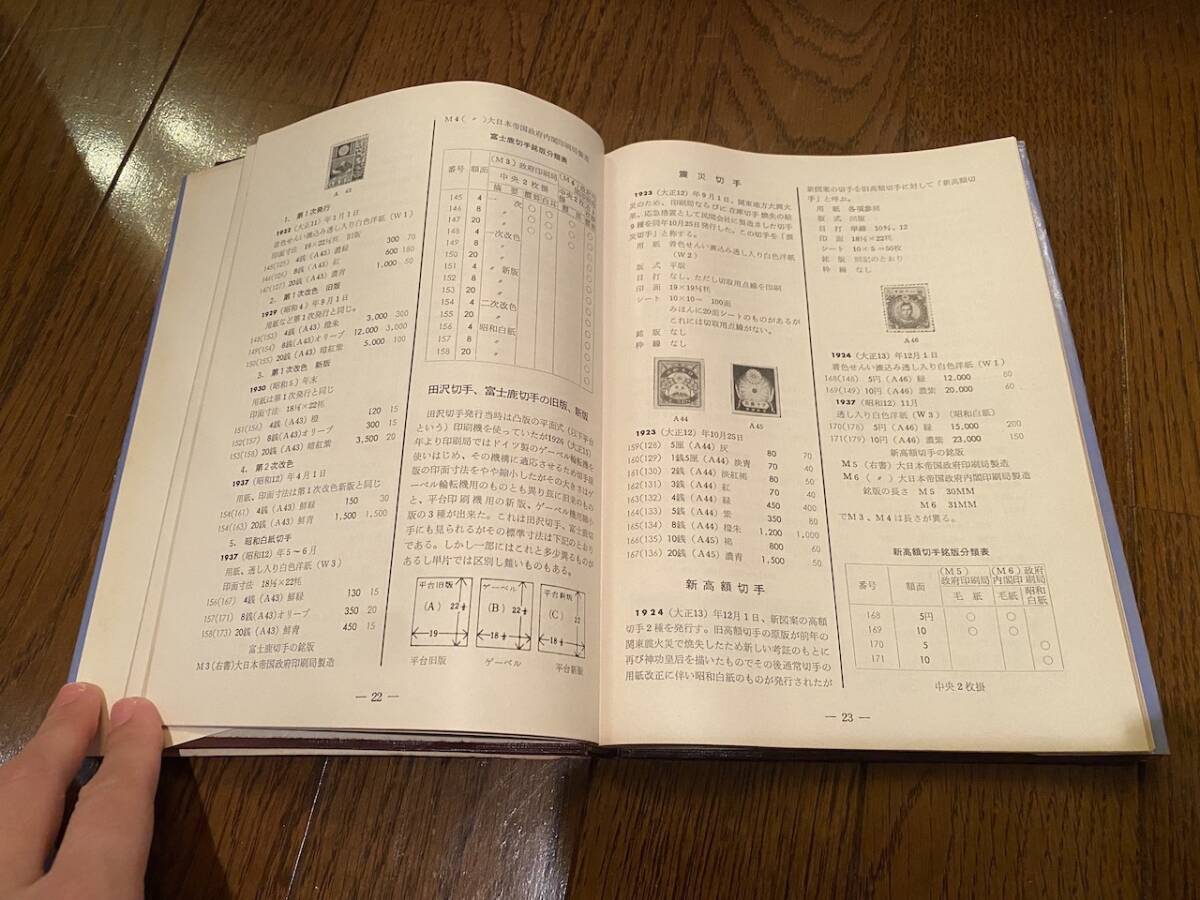 A 43
1. 第1次発行
1922(大正11)年1月1日
着色せんい漉込み透し入り白色洋紙(W1)
印面寸法 19×22½粍 旧版
145(125) 4銭(A43)濃緑 300 70
146(126) 8銭(A43)紅 600 180
147(127) 20銭(A43)濃青 1,000 50
2. 第1次改色 旧版
1929(昭和4)年9月1日
用紙など第1次発行と同じ。
148(153) 4銭(A43)橙朱 3,000 300
149(154) 8銭(A43)オリーブ 12,000 3,000
150(155) 20銭(A43)暗紅紫 5,000 100
3. 第1次改色 新版
1930(昭和5)年末
用紙は第1次発行と同じ
印面寸法 18½×22粍
151(156) 4銭(A43)橙 120 15
152(157) 8銭(A43)オリーブ 300 15
153(158) 20銭(A43)暗紅紫 3,500 20
4. 第2次改色
1937(昭和12)年4月1日
用紙、印面寸法は第1次改色新版と同じ
154(161) 4銭(A43)鮮緑 150 30
155(163) 20銭(A43)鮮青 1,500 1,500
5. 昭和白紙切手
1937(昭和12)年5〜6月
用紙、透し入り白色洋紙(W3)
印面寸法 18½×22粍
156(167) 4銭(A43)鮮緑 130 15
157(171) 8銭(A43)オリーブ 350 20
158(173) 20銭(A43)鮮青 450 15
富士鹿切手の銘版
M3(右書)大日本帝国政府印刷局製造
M4(〃)大日本帝国政府内閣印刷局製造
富士鹿切手銘版分類表
番号 額面 (M3)政府印刷局 (M4)
中央2枚掛
摘要
145 4 一次 ○
146 8 〃 ○
147 20 〃 ○
148 4 一次改色 ○
149 8 〃
150 20 〃
151 4 〃新版
152 8 〃
153 20 〃
154 4 二次改色
155 20 〃
156 4 昭和白紙
157 8 〃
158 20 〃
田沢切手、富士鹿切手の旧版、新版
田沢切手発行当時は凸版の平面式(以下平台
という)印刷機を使っていたが1926(大正15)
年より印刷局ではドイツ製のゲーベル輪転機を
使いはじめ、その機構に適応させるため切手原
版の印面寸法をやや縮小したがその大きさはゲ
ーベル輪転機用のものとも異り玆に旧来のもの
と、平台印刷機用の新版、ゲーベル機用縮小
版の3種が出来た。これは田沢切手、富士鹿切
手にも見られるがその標準寸法は下記のとおり
である。しかし一部にはこれと多少異るものが
あるし単片では区別し難いものもある。
平台旧版 (A) 22½ 19
ゲーベル (B) 22½ 18½
平台新版 (C) 22 18½
平台旧版 ゲーベル 平台新版
— 22 —
震災切手
1923(大正12)年9月1日、関東地方大震火
災のため、印刷局ならびに在庫切手焼失の結
果、応急措置として民間会社に製造ました切手
9種を同年10月25日発行した。この切手を「震
災切手」と称する。
用紙 着色せんい漉込み透し入り白色洋紙
(W2)
版式 平版
目打 なし、ただし切取用点線を印刷
印面 19×19½粍
シート 10×10= 100面
みほんに20面シートのものがあるが
これには切取用点線がない。
銘版 なし
枠線 なし
A44
A45
1923(大正12)年10月25日
159(128) 5厘(A44)灰 80 70
160(129) 1銭5厘(A44)淡青 70 40
161(130) 2銭(A44)淡紅褐 80 50
162(131) 3銭(A44)紅 70 40
163(132) 4銭(A44)緑 450 400
164(133) 5銭(A44)紫 350 80
165(134) 8銭(A44)橙朱 1,200 1,000
166(135) 10銭(A45)褐 800 60
167(136) 20銭(A45)濃青 1,500 50
新高額切手
1924(大正13)年12月1日、新図案の高額
切手2種を発行す。旧高額切手の原版が前年の
関東震火災で焼失したため新しい考証のもとに
再び神功皇后を描いたものでその後通常切手の
用紙改正に伴い昭和白紙のものが発行されたが
新図案の切手を旧高額切手に対して「新高額切
手」と呼ぶ。
用紙 各項参照
版式 凹版
目打 単線 10¾, 12
印面 18½×22粍
シート 10×5=50枚
銘版 別記のとおり
枠線 なし
A46
1924(大正13)年12月1日
着色せんい漉込み透し入り白色洋紙(W1)
168(148) 5円(A46)緑 12,000 80
169(149) 10円(A46)濃紫 20,000 60
1937(昭和12)11月
透し入り白色洋紙(W3)(昭和白紙)
170(178) 5円(A46)緑 15,000 200
171(179) 10円(A46)濃紫 23,000 150
新高額切手の銘版
M5(右書)大日本帝国政府印刷局製造
M6(〃)大日本帝国政府内閣印刷局製造
銘版の長さ M5 30MM
M6 31MM
でM3、M4は長さが異る。
新高額切手銘版分類表
番号 額面 (M5)政府印刷局 (M6)政府内閣印刷局
毛紙 毛紙 昭和白紙
168 5円 ○ ○
169 10 ○ ○
170 5 ○
171 10 ○
中央2枚掛
— 23 —